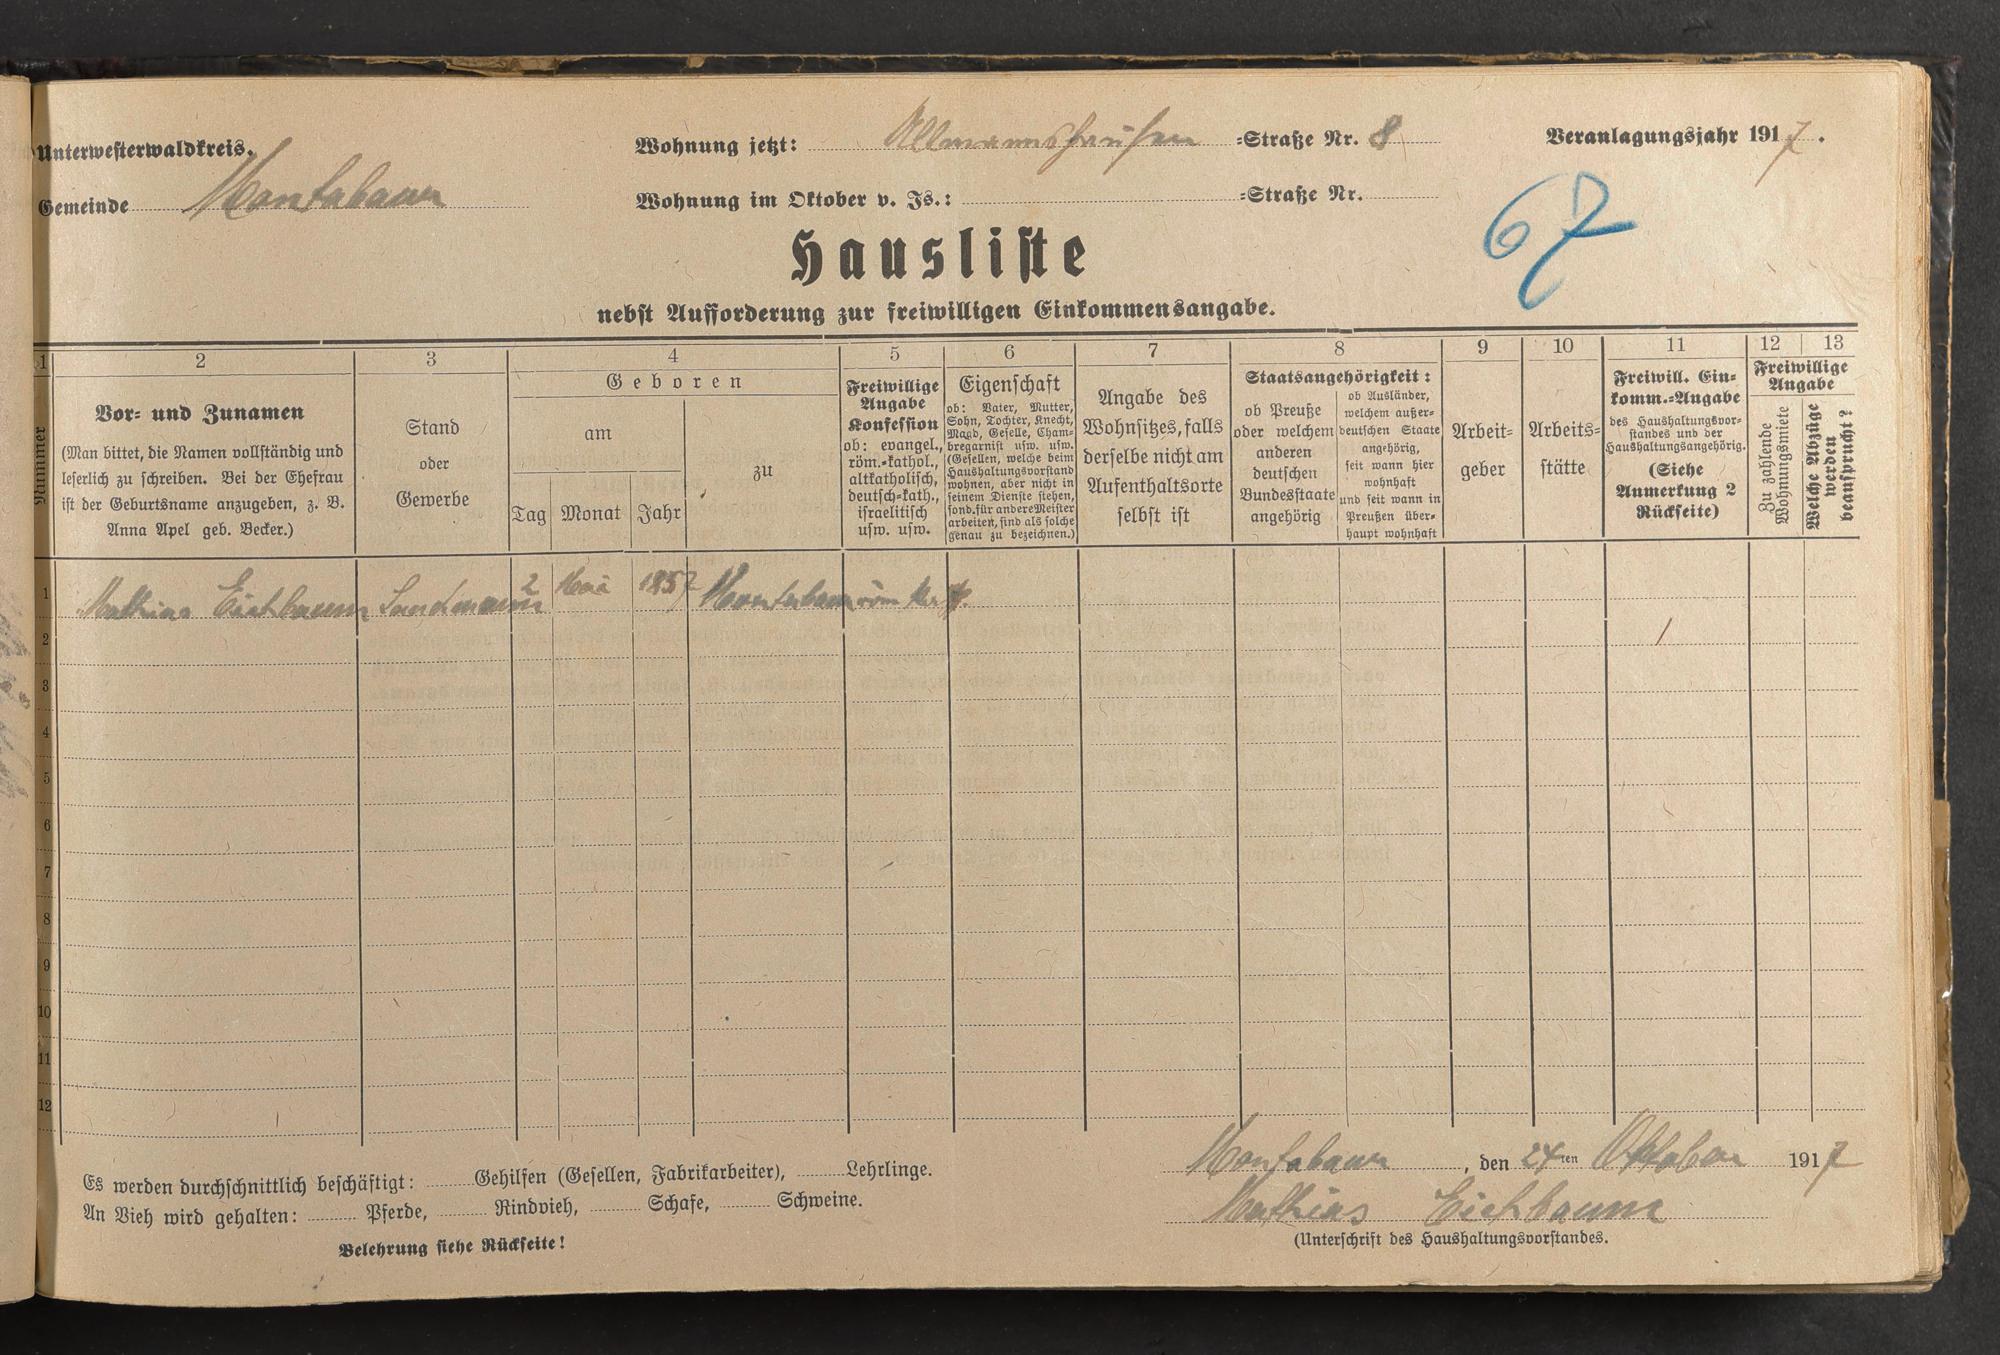 Unterwesterwaldkreis.
Gemeinde Montabaur
Wohnung jetzt: Allmannshausen =Straße Nr. 8
Wohnung im Oktober v. Js.: =Straße Nr.
Veranlagungsjahr 1917.
67
Hausliste
nebst Aufforderung zur freiwilligen Einkommensangabe.
1 2 3 4 5 6 7 8 9 10 11 12 13
Nummer
Vor- und Zunamen
(Man bittet, die Namen vollständig und
leserlich zu schreiben. Bei der Ehefrau
ist der Geburtsname anzugeben, z. B.
Anna Apel geb. Becker.)
Stand
oder
Gewerbe
Geboren
am
Tag Monat Jahr
zu
Freiwillige
Angabe
Konfession
ob: evangel.,
röm.-kathol.,
altkatholisch,
deutsch-kath.,
israelitisch
usw. usw.
Eigenschaft
ob: Vater, Mutter,
Sohn, Tochter, Knecht,
Magd, Geselle, Cham-
bregarnist usw. usw.
(Gesellen, welche beim
Haushaltungsvorstand
wohnen, aber nicht in
seinem Dienste stehen,
sond. für andere Meister
arbeiten, sind als solche
genau zu bezeichnen.)
Angabe des
Wohnsitzes, falls
derselbe nicht am
Aufenthaltsorte
selbst ist
Staatsangehörigkeit:
ob Preuße
oder welchem
anderen
deutschen
Bundesstaate
angehörig
ob Ausländer,
welchem außer-
deutschen Staate
angehörig,
seit wann hier
wohnhaft
und seit wann in
Preußen über-
haupt wohnhaft
Arbeit-
geber
Arbeits-
stätte
Freiwill. Ein-
komm.-Angabe
des Haushaltungsvor-
standes und der
Haushaltungsangehörig.
(Siehe
Anmerkung 2
Rückseite)
Freiwillige
Angabe
Zu zahlende
Wohnungsmiete
Welche Abzüge
werden
beansprucht?
1 Mathias Eichbaum Landmann 2 Mai 1857 Montabaur röm kat.
2
3
4
5
6
7
8
9
10
11
12
Es werden durchschnittlich beschäftigt: Gehilfen (Gesellen, Fabrikarbeiter), Lehrlinge.
An Vieh wird gehalten: Pferde, Rindvieh, Schafe, Schweine.
Belehrung siehe Rückseite!
Montabaur, den 24ten Oktober 1917
Mathias Eichbaum
(Unterschrift des Haushaltungsvorstandes.